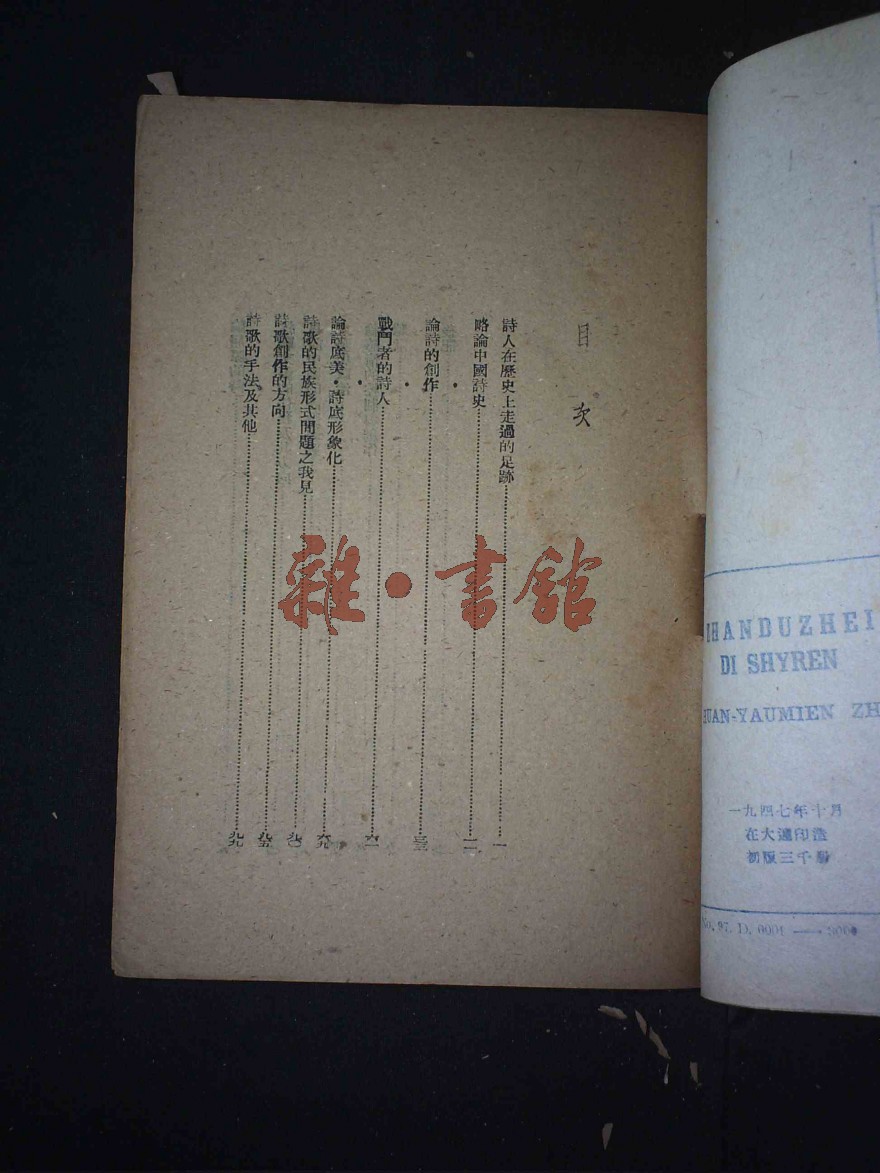 HANDUZHEI
DI SHYREN
UAN-YAUMIEN ZH
一九四七年十月
在大連印造
初版三千冊
No. 97. D. 0001 — 3000
目次
詩人在歷史上走過的足跡……一
略論中國詩史……
論詩的創作……
戰鬥者的詩人……六一
論詩底美·詩底形象化……六九
詩歌的民族形式問題之我見……九〇
詩歌創作的方向……九五
詩歌的手法及其他……九九
雜·書館